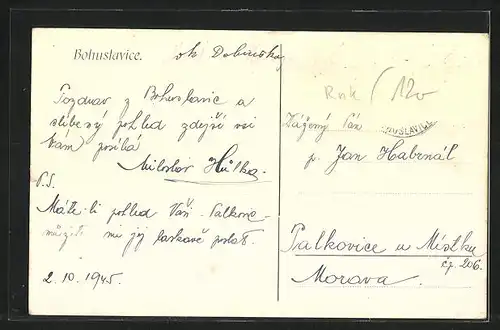 Bohuslavice.
ok Dobruška
Pozdrav z Bohuslavic a
slíbený pohled zdejší vsi
Vám posílá
Miloslav Hůlka.
P.S.
Máte-li pohled Vaší Palkovic
můžete mi jej laskavě poslat.
2.10.1945.
120
BOHUSLAVICE
Vážený Pán
p. Jan Habrnál
Palkovice u Místku
čp. 206.
Morava.